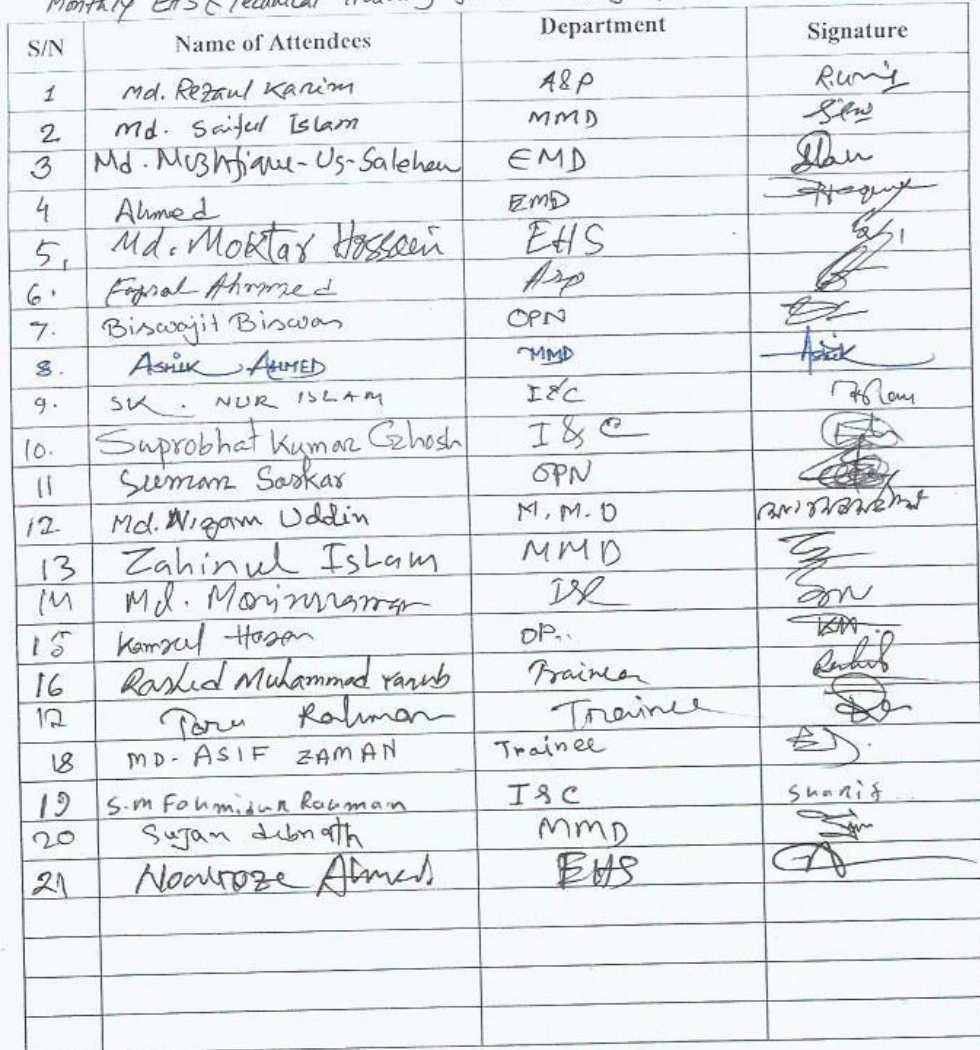 Monthly EHS & Technical Training
S/N Name of Attendees Department Signature
1 Md. Rezaul Karim A&P
2 Md. Saiful Islam MMD
3 Md. Mushfique-Us-Salehen EMD
4 Ahmed EMD
5, Md. Moktar Hossain EHS
6. Faysal Ahmmed A&P
7. Biswajit Biswas OPN
8. ASHIK AHMED MMD Ashik
9. SK. NUR ISLAM I&C Islam
10. Suprobhat Kumar Ghosh I & C
11 Suman Sarkar OPN
12. Md. Nizam Uddin M.M.D
13 Zahinul Islam MMD
14 Md. I&C
15 Kamrul Hasan OP.. KH.
16 Rashed Muhammad Trainee
17 Rahman Trainee
18 MD-ASIF ZAMAN Trainee
19 S.m Fahmidur Rahman I&C Sharif
20 Sujan debnath MMD
21 Nowroze Ahmed EHS